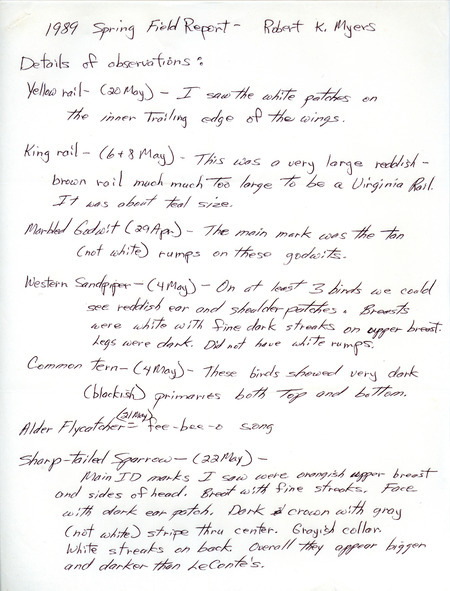 1989 Spring Field Report - Robert K. Myers
Details of observations:
Yellow rail - (20 May) - I saw the white patches on
the inner trailing edge of the wings.
King rail - (6 + 8 May) - This was a very large reddish -
brown rail much much too large to be a Virginia Rail.
It was about teal size.
Marbled Godwit (29 Apr.) - The main mark was the tan
(not white) rumps on these godwits.
Western Sandpiper - (4 May) - On at least 3 birds we could
see reddish ear and shoulder patches. Breasts
were white with fine dark streaks on upper breast.
Legs were dark. Did not have white rumps.
Common tern - (4 May) - These birds showed very dark
(blackish) primaries both top and bottom.
(21 May)
Alder Flycatcher = fee-bee-o song
Sharp-tailed Sparrow - (22 May) -
Main ID marks I saw were orangish upper breast
and sides of head. Breast with fine streaks. Face
with dark ear patch. Dark crown with gray
(not white) stripe thru center. Grayish collar.
White streaks on back. Overall they appear bigger
and darker than LeConte's.